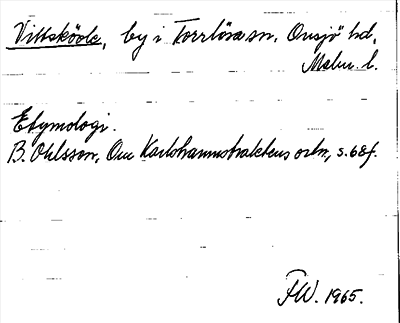 Vittsköole, by i Torrlösa sn, Onsjö hd,
Malm. l.
Etymologi.
B. Ohlsson, Om Karlshamnstraktens ortn, s. 68f.
FW. 1965.